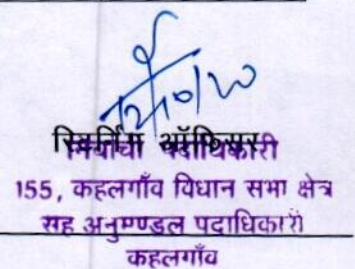 रिटर्निंग ऑफिसर
निर्वाची पदाधिकारी
155, कहलगाँव विधान सभा क्षेत्र
सह अनुमण्डल पदाधिकारी
कहलगाँव